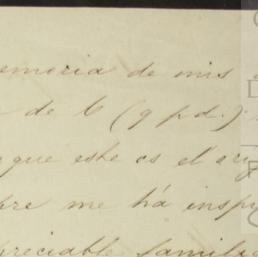 emoria de mis
de C (q p d.)
que este es el orig
pre me há inspi
preciable familia